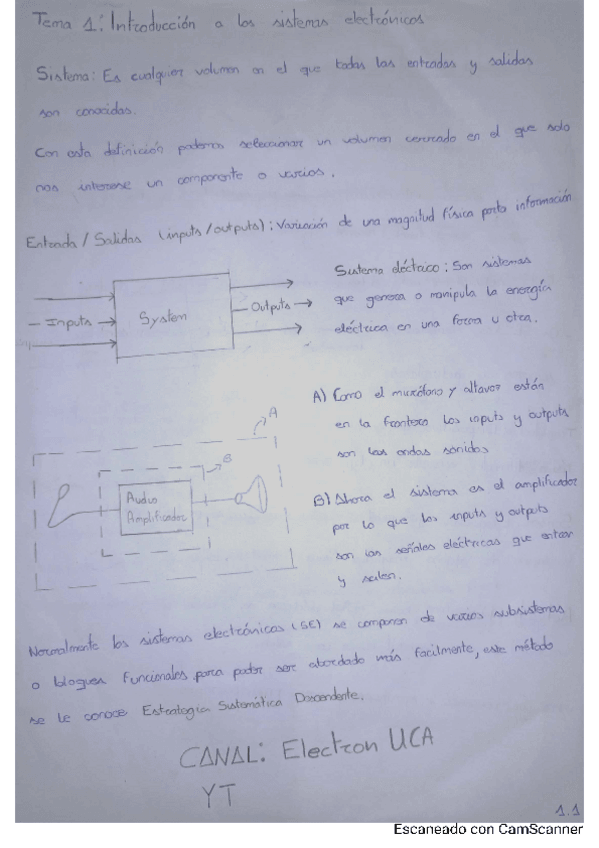 Tema 1: Introducción a los sistemas electrónicos
Sistema: Es cualquier volumen en el que todas las entradas y salidas
son conocidas.
Con esta definición podemos seleccionar un volumen cerrado en el que solo
nos interese un componente o varios.
Entrada / Salidas (inputs / outputs): Variación de una magnitud física porta información
Inputs
System
Outputs
Sistema eléctrico: Son sistemas
que genera o manipula la energía
eléctrica en una forma u otra.
A
B
Audio
Amplificador
A) Como el micrófono y altavoz están
en la frontera los inputs y outputs
son las ondas sonidos
B) Ahora el sistema es el amplificador
por lo que los inputs y outputs
son las señales eléctricas que entran
y salen.
Normalmente los sistemas electrónicos (SE) se componen de varios subsistemas
o bloques funcionales para poder ser abordado más facilmente, este método
se le conoce Estrategia Sistemática Descendente.
CANAL: Electron UCA
YT
1.1
Escaneado con CamScanner